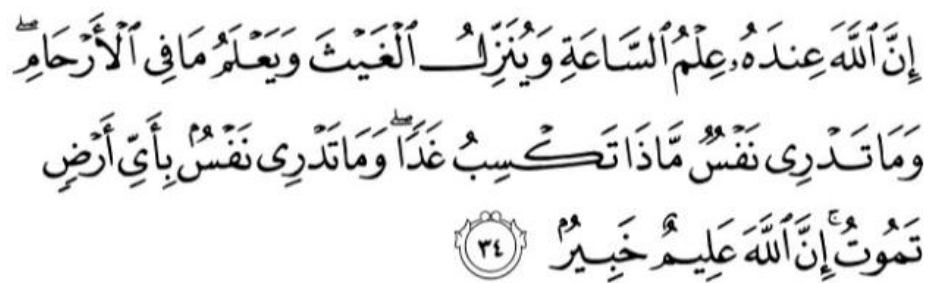 إِنَّ ٱللَّهَ عِندَهُۥ عِلْمُ ٱلسَّاعَةِ وَيُنَزِّلُ ٱلْغَيْثَ وَيَعْلَمُ مَا فِى ٱلْأَرْحَامِ ۖ
وَمَا تَدْرِى نَفْسٌ مَّاذَا تَكْسِبُ غَدًا ۖ وَمَا تَدْرِى نَفْسٌۢ بِأَىِّ أَرْضٍ
تَمُوتُ ۚ إِنَّ ٱللَّهَ عَلِيمٌ خَبِيرٌۢ ٣٤